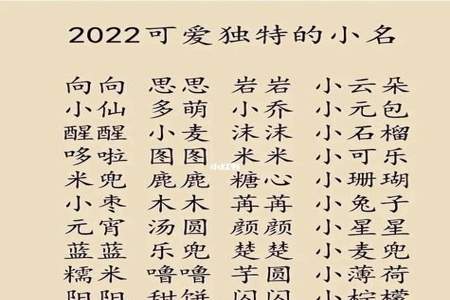 2022可爱独特的小名
向向 思思 岩岩 小云朵
小仙 多萌 小乔 小元包
醒醒 小麦 沫沫 小石榴
哆啦 图图 米米 小可乐
小红书
米兜 鹿鹿 糖心 小珊瑚
小枣 木木 苒苒 小兔子
元宵 汤圆 颜颜 小星星
蓝蓝 乐兜 楚楚 小麦兜
糯米 噜噜 芋圆 小薄荷
阳阳 甜饼 闪闪 小柠檬